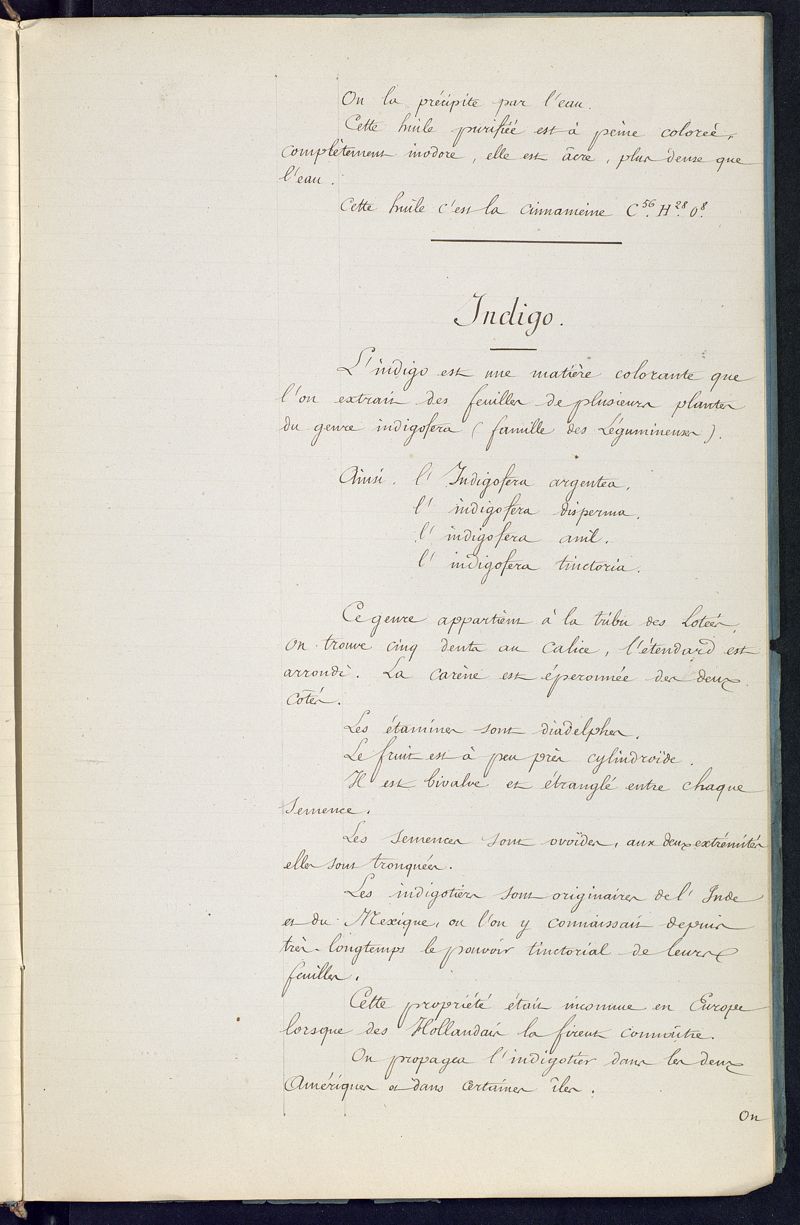 On la précipite par l'eau.
Cette huile purifiée est à peine colorée,
complètement inodore, elle est âcre, plus dense que
l'eau.
Cette huile c'est la cinnameine C⁵⁶. H²⁸. O⁸.
Indigo.
L'indigo est une matière colorante que
l'on extrait des feuilles de plusieurs plantes
du genre indigofera (famille des Légumineuses).
Ainsi. l'Indigofera argentea,
l'indigofera disperma,
l'indigofera anil.
l'indigofera tinctoria.
Ce genre appartient à la tribu des Lotées,
on trouve cinq dents au calice, l'étendard est
arrondi. La carène est éperonnée des deux
cotés.
Les étamines sont diadelphes.
Le fruit est à peu près cylindroïde.
Il est bivalve et étranglé entre chaque
semence.
Les semences sont ovoïdes, aux deux extrémités
elles sont tronquées.
Les indigotiers sont originaires de l'Inde
et du Mexique, ou l'on y connaissait depuis
très-longtemps le pouvoir tinctorial de leurs
feuilles.
Cette propriété était inconnue en Europe
lorsque des Hollandais la firent connaître.
On propagea l'indigotier dans les deux
Amériques et dans certaines îles.
On